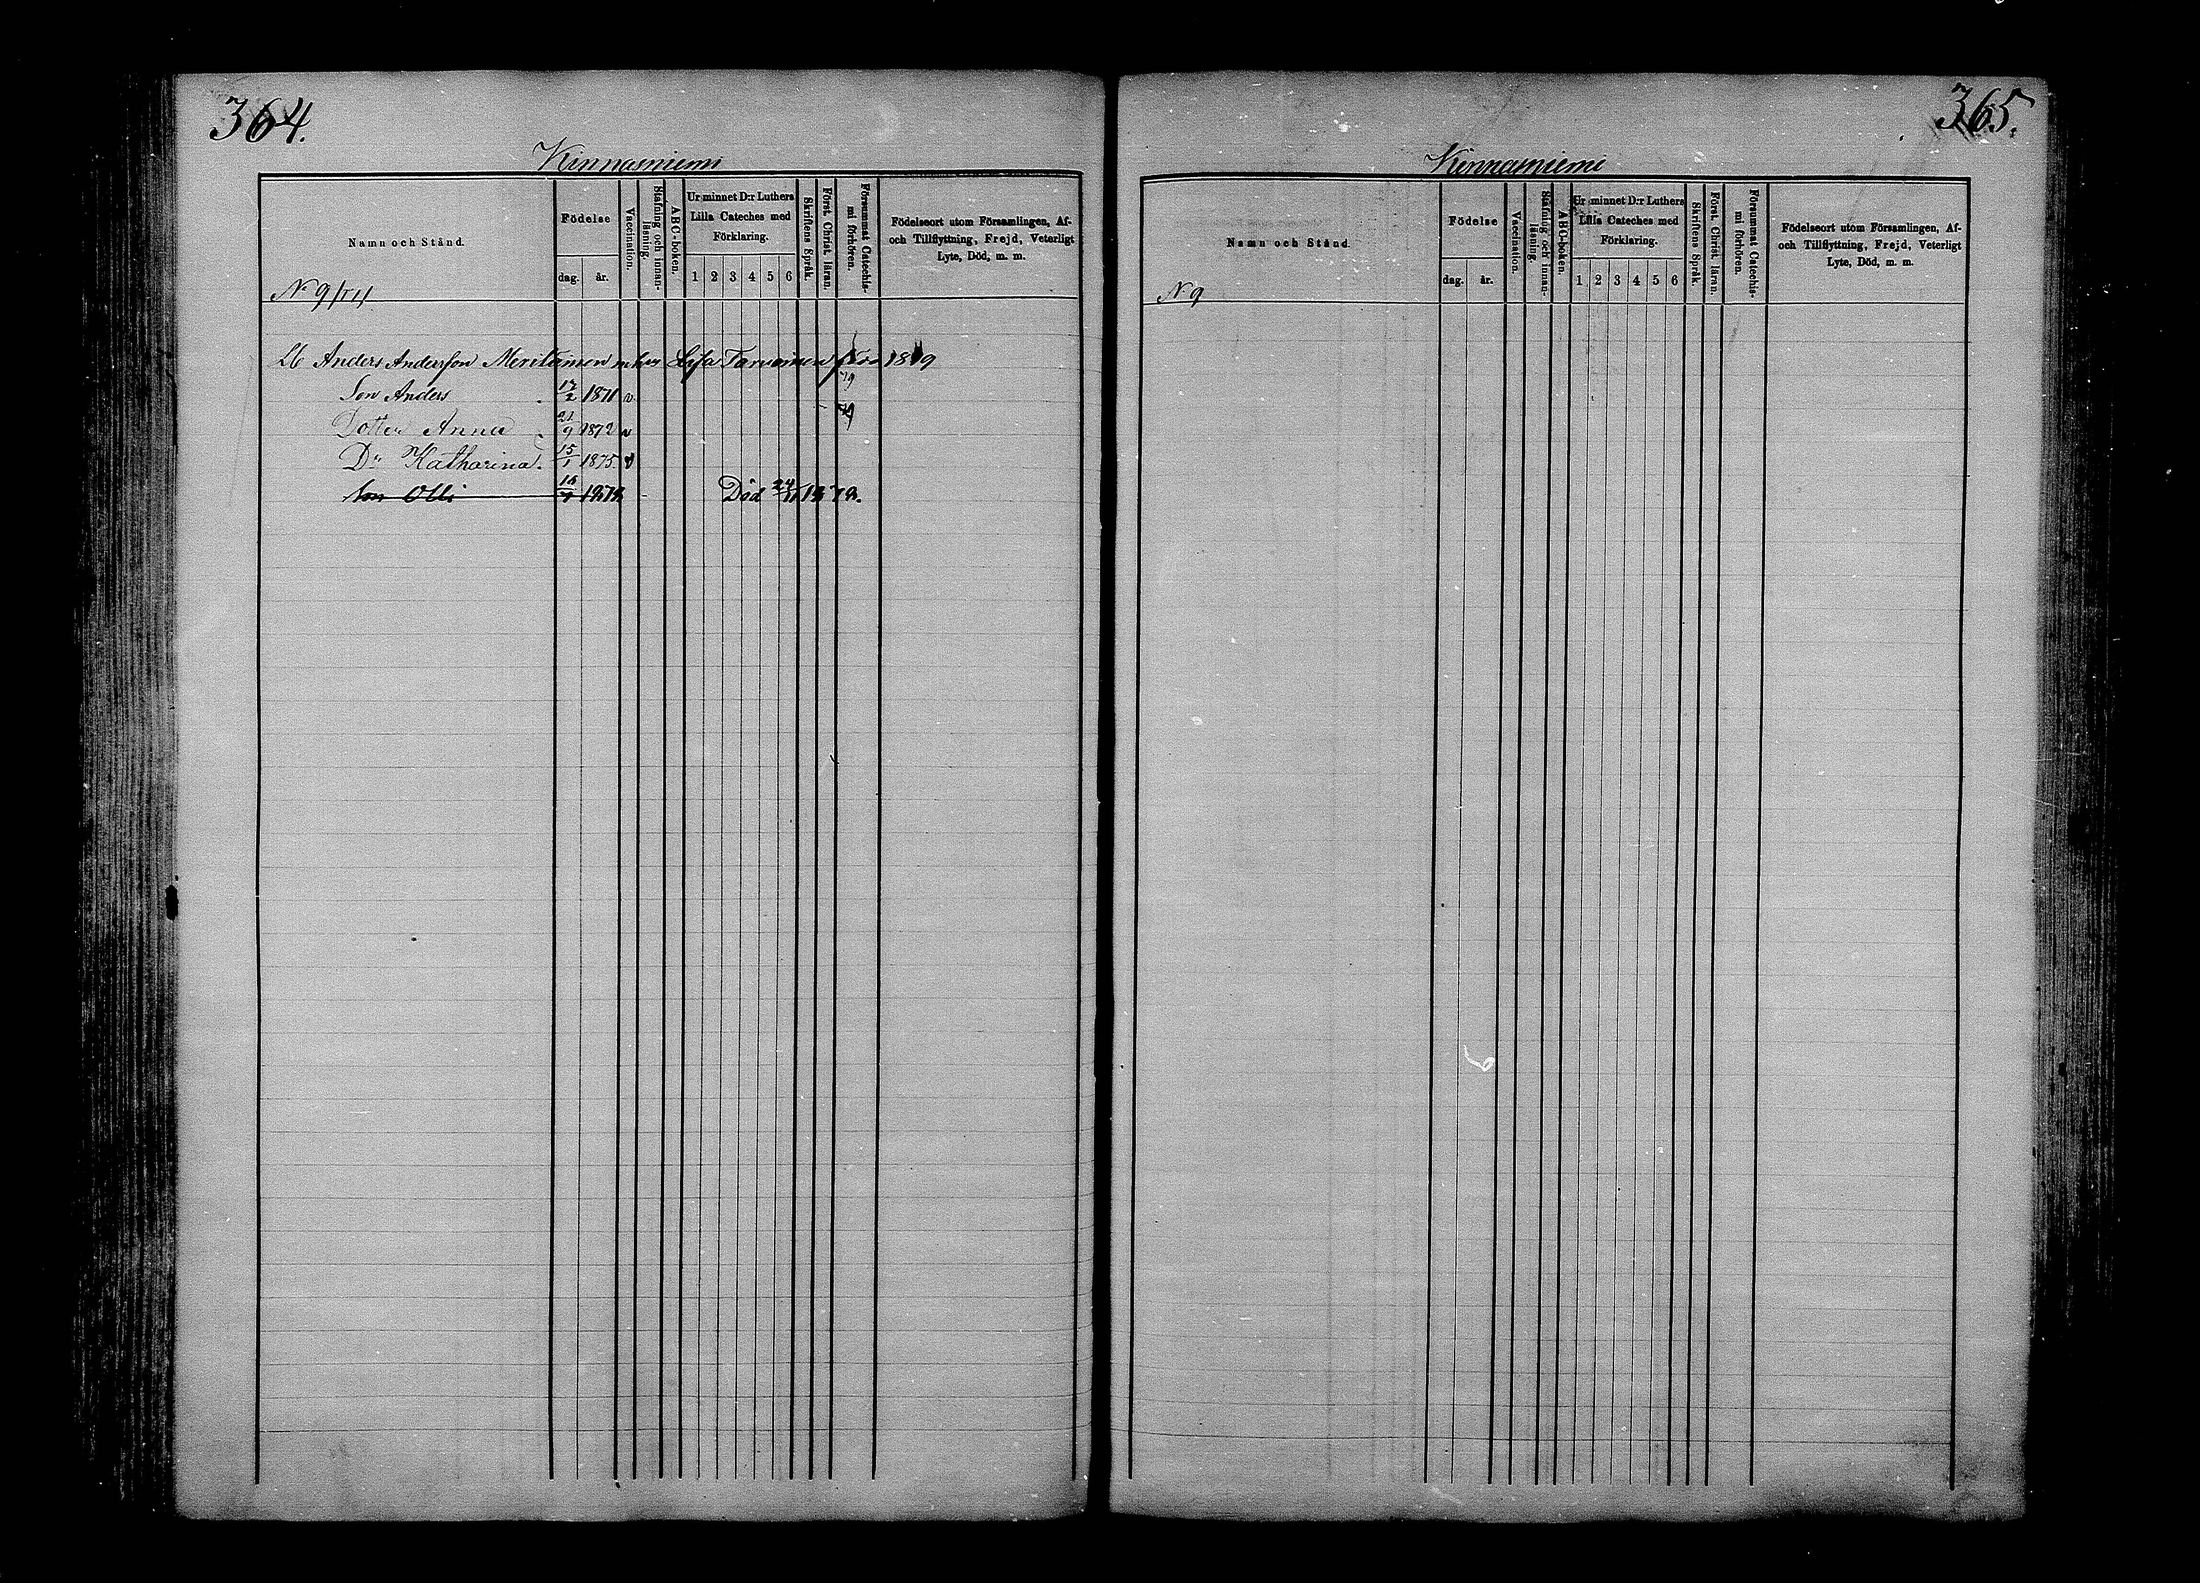 364.
Kinnasniemi
Namn och Stånd.
Födelse
dag. år.
Vaccination.
Stafning och innanläsning.
ABC-boken.
Ur minnet D:r Luthers Lilla Cateches med Förklaring.
1 2 3 4 5 6
Skriftens Språk.
Först. Christ. läran.
Försummat Catechismi förhören.
Födelseort utom Församlingen, Af- och Tillflyttning, Frejd, Veterligt Lyte, Död, m. m.
N 9
Anders Andersson Meriläinen Lisa Tarvainen 1879
79
Son Anders 17/2 1871 v
Dotter Anna 21/9 1872 v
D:r Katharina 15/1 1875 v
Son Olli 1878 Död 24/11 1878.
365.
Kinnasniemi
Namn och Stånd.
Födelse
dag. år.
Vaccination.
Stafning och innanläsning.
ABC-boken.
Ur minnet D:r Luthers Lilla Cateches med Förklaring.
1 2 3 4 5 6
Skriftens Språk.
Först. Christ. läran.
Försummat Catechismi förhören.
Födelseort utom Församlingen, Af- och Tillflyttning, Frejd, Veterligt Lyte, Död, m. m.
N 9